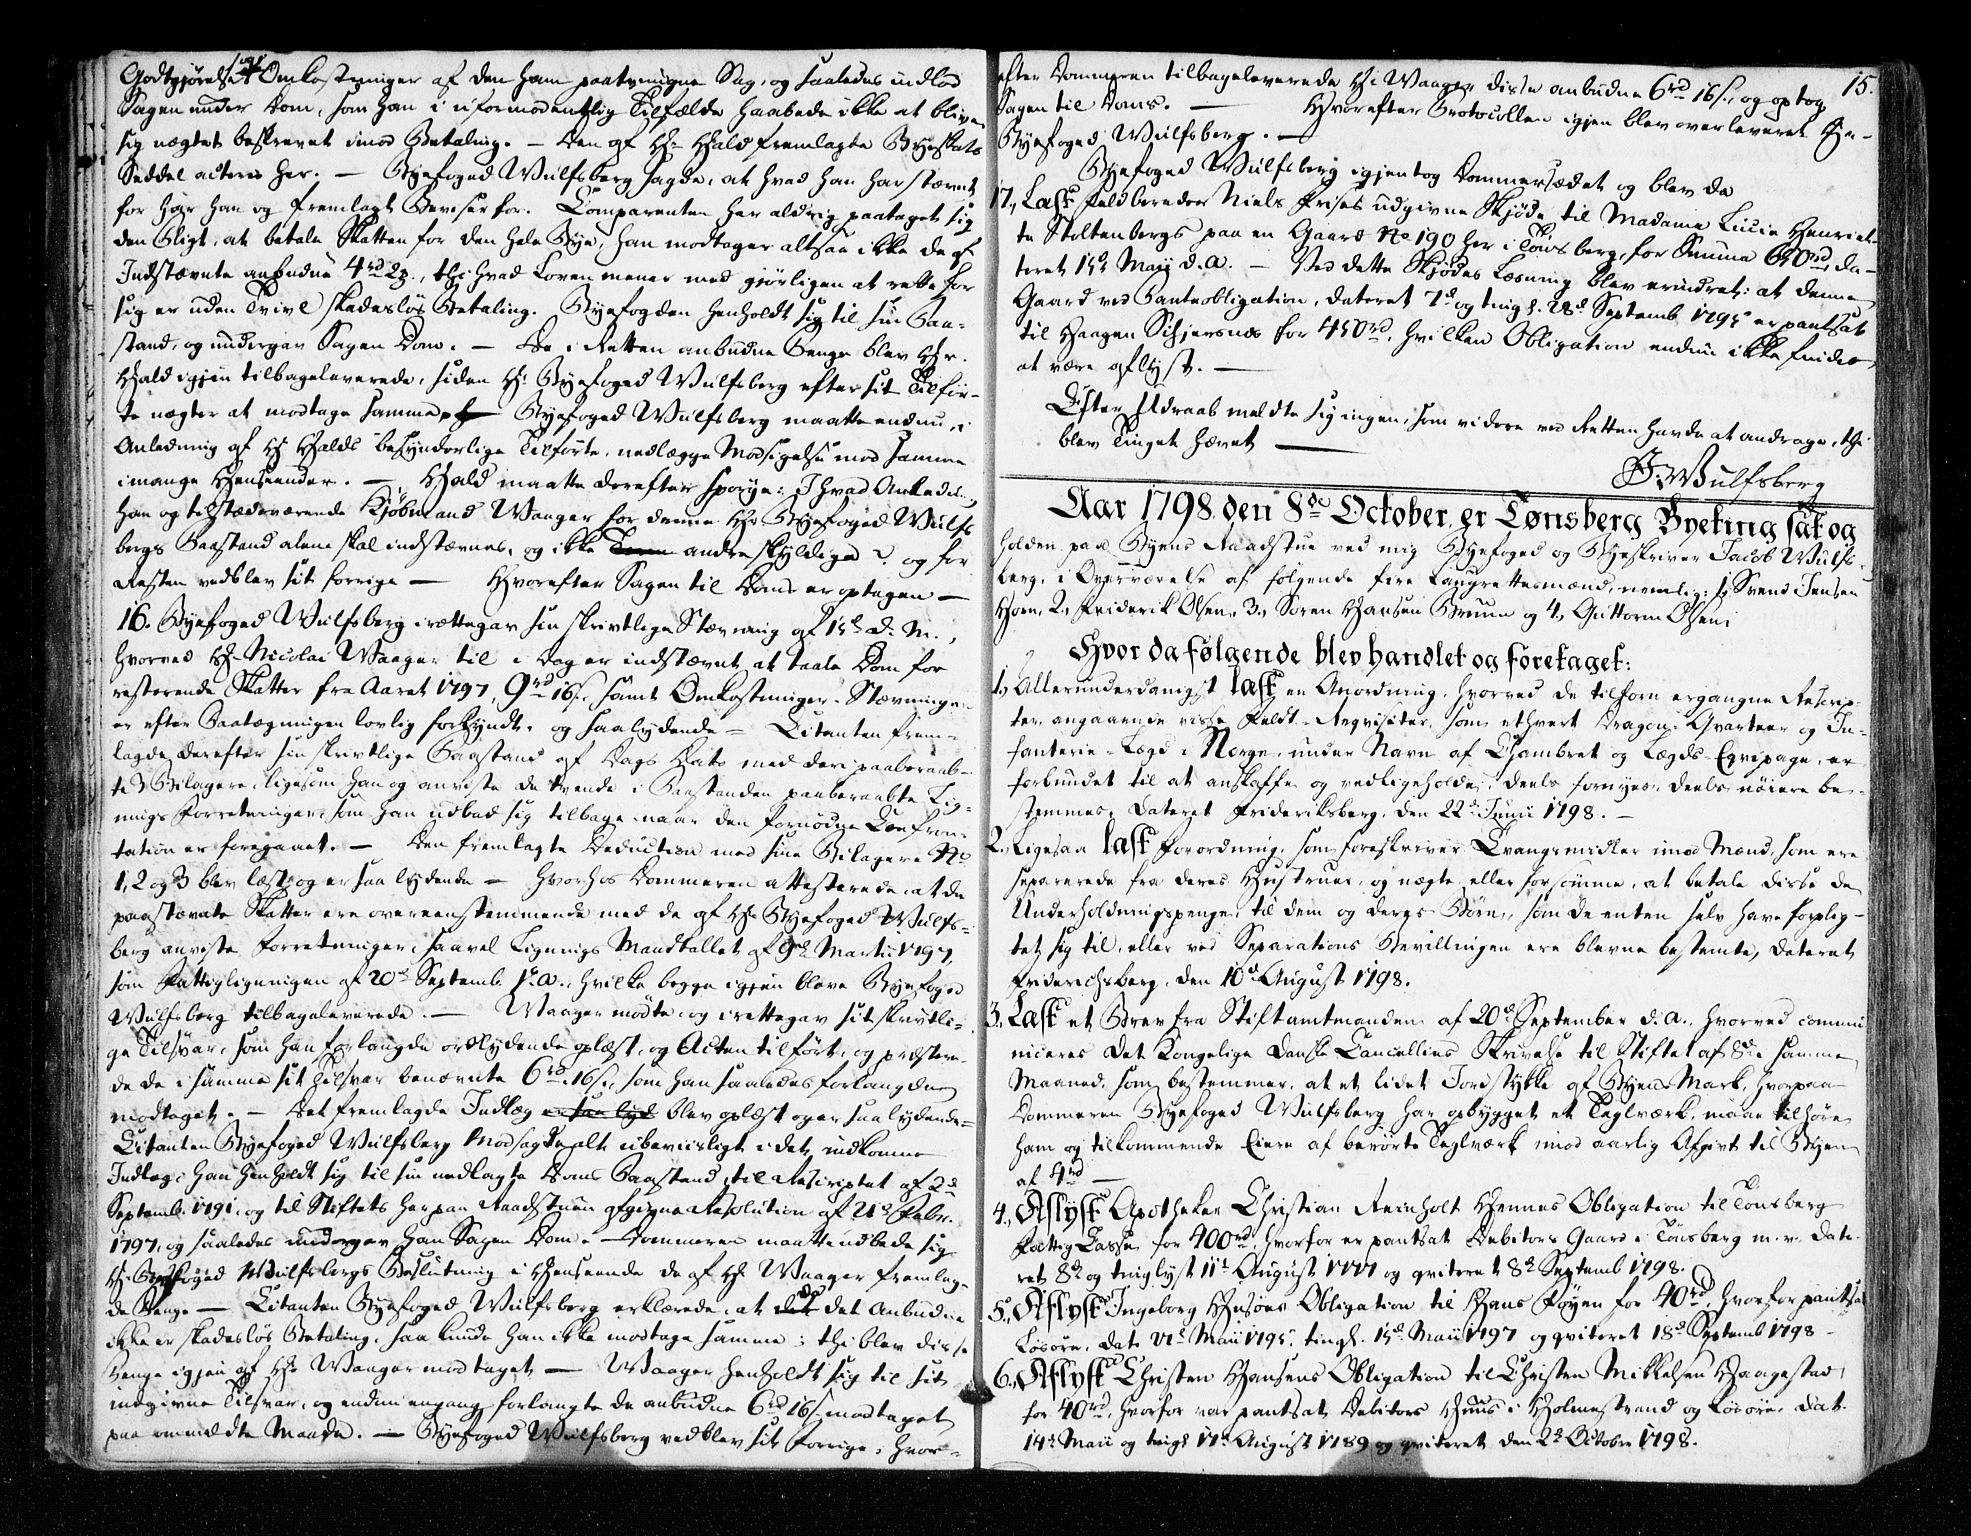 Godtgjørelse og Omkostninger af den ham paatvungne Sag, og saaledes indlod
Sagen under Dom, som han i uformodentlig Tilfælde haabede ikke at blive
sig nægtet beskrevet imod Betaling. — Den af Hr. Hald fremlagte Byeskats
Seddel acteres her. — Byefoged Wulfsberg sagde, at hvad han har stævnet
for har han og fremlagt Beviser for. Comparenten har aldrig paataget sig
den Pligt, at betale Skatten for den hele Bye, han modtager altsaa ikke de af
Indstævnte anbudne 4rd 2 , thi hvad Loven mener med gjørligen at rette for
sig er uden Tvivl skadesløs Betaling. Byefogden henholdt sig til sin Paa-
stand, og undergav Sagen Dom. — De i Retten anbudne Penge blev Hr.
Hald igjen tilbageleverede, siden Hr. Byefoged Wulfsberg efter sit Tilfør-
te nægter at modtage samme. Byefoged Wulfsberg maatte endnu, i
Anledning af Hr. Halds besynderlige Tilførte, nedlægge Modsigelse mod samme
i mange Henseender. — Hald maatte derefter spørge: I hvad Anledn.
han og tilstædeværende Kjøbmand Waager for denne Hr. Byefoged Wulfs
bergs Paastand alene skal indstævnes, og ikke andre skyldige? og for
Resten vedblev sit forrige — Hvorefter Sagen til Doms er optagen —
16. Byefoged Wulfsberg irættegav sin skrivtlige Stævning af 15de d. M.,
hvorved Hr. Nicolai Waager til i Dag er indstævnt at taale Dom for
resterende Skatter fra Aaret 1797, 9rd 16s, samt Omkostninger. Stævningen
er efter Paategningen lovlig forkyndt, og saalydende — Citanten frem-
lagde derefter sin skrivtlige Paastand af Dags Dato med deri paaberaab-
te 3 Bilagere, ligesom han og anviste de tvende i Paastanden paaberaabte Lig-
nings Forretninger, som han udbad sig tilbage naar den fornødne Confron-
tation er foregaaet. — Den fremlagte Deduction med sine Bilagere No
1, 2 og 3 blev læst og er saa lydende — hvorhos Dommeren attesterede, at de
paastævnte Skatter ere overeenstemmende med de af Hr. Byefoged Wulfs-
berg anviste Forretninger, saavel Lignings Mandtallet af 9de Martii 1797,
som Fattigligningen af 20de Septemb. s. a., hvilke begge igjen bleve Byefoged
Wulfsberg tilbageleverede. — Waager mødte og irettegav sit skrivtli-
ge Tilsvar, som han forlangde ordlydende oplæst, og Acten tilført, og præstere-
de de i samme sit Tilsvar benævnte 6rd 16s, som han saaledes forlangde
modtaget. — Det fremlagde Indlæg er saa lyd blev oplæst og er saa lydende —
Citanten Byefoged Wulfsberg modsagde alt ubeviisligt i det indkomne
Indlæg; han henholdt sig til sin nedlagte Doms Paastand, til Rescriptet af 2d
Septemb. 1791, og til Stiftets herpaa Raadstuen afgivne Resolution af 21d Febr.
1797, og saaledes undergav han Sagen Dom. Dommeren maatte udbede sig
Hr. Byefoged Wulfsbergs Beslutning i Henseende de af Hr. Waager fremlag-
de Penge — Citanten Byefoged Wulfsberg erklærede, at da det Anbudne
ikke er skadesløs Betaling, saa kunde han ikke modtage samme; thi blev disse
Penge igjen af Hr. Waager modtaget — Waager henholdt sig til sit
indgivne Tilsvar, og endnu engang forlangte de anbudne 6rd 16s modtaget
paa ommeldte Maade. — Byefoged Wulfsberg vedblev sit Forrige; hvor-
15.
efter Dommeren tilbageleverede Hr. Waager disse anbudne 6rd 16s, og optog
Sagen til Doms. — Hvorefter Protocollen igjen blev overleveret Hr.
Byefoged Wulfsberg. —
Byefoged Wulfsberg igjentog Dommersædet og blev da
17., Læst Feldbereder Niels Friises udgivne Skjøde til Madame Lucie Henriet-
te Stoltenbergs paa en Gaard No 190 her i Tønsberg, for Summa 650rd, da-
teret 15de Maij d. a. — Ved dette Skjødes Læsning blev erindret: at denne
Gaard ved Panteobligation, dateret 7d og tingl. 28d Septemb. 1795 er pantsat
til Haagen Schjersnes for 450rd, hvilken Obligation endnu ikke findes
at være aflyst. —
Efter Udraab meldte sig ingen, som videre ved Retten havde at andrage, thi
blev Tinget hævet —
J. Wulfsberg
Aar 1798 den 8de October er Tønsberg Byeting sat og
holden paa Byens Raadstue ved mig Byefoged og Byeskriver Jacob Wulfs-
berg, i Overværelse af følgende fire Laugrettesmænd, nemlig: 1, Svend Jensen
Horn, 2, Friderik Olsen, 3, Søren Hansen Bruun og 4, Guttorm Olsen;
Hvor da følgende blev handlet og foretaget:
1., Allerunderdanigst læst en Anordning, hvorved de tilforn ergangne Rescrip-
ter angaaende visse Feldt-Reqvisiter, som ethvert Dragon-Qvarteer og In-
fanterie-Lægd i Norge, under Navn af Chambret og Lægds-Eqvipage, er
forbundet til at anskaffe og vedligeholde, deels fornyes, deels nöiere be-
stemmes. Dateret Frideriksberg, den 22de Junii 1798. —
2., Ligesaa læst Forordning, som foreskriver Tvangsmidler imod Mænd, som ere
separerede fra deres Hustruer, og nægte eller forsømme, at betale disse de
Underholdningspenge, til dem og deres Børn, som de enten selv have forplig-
tet sig til, eller ved Separations Bevillingen ere blevne bestemte, dateret
Friderichsberg, den 10d August 1798.
3., Læst et Brev fra Stiftamtmanden af 20d September d. a., hvorved commu-
niceres det Kongelige Danske Cancellies Skrivelse til Stiftet af 8de samme
Maaned, som bestemmer, at et lidet Jordstykke af Byens Mark, hvorpaa
Dommeren Byefoged Wulfsberg har opbygget et Teglværk, maae tilhøre
ham og tilkommende Eiere af berørte Teglværk imod aarlig Afgivt til Byen
af 4rd —
4., Aflyst Apotheker Christian Reinholt Hennes Obligation til Tønsberg
Fattig Casse for 400rd, hvorfor er pantsat Debitors Gaard i Tønsberg m. v. date-
ret 8de og tinglyst 11t August 1777 og qvitteret 8de Septemb 1798.
5., Aflyst Ingeborg Husöes Obligation til Hans Föyen for 40rd, hvorfor pantsat
Løsøre, dat. Maii 1795, tingl. 15d Maii 1797 og qvitteret 18d Septemb 1798 —
6., Aflyst Christen Hansens Obligation til Christen Mikkelsen Haagestad
for 40rd, hvorfor var pantsat Debitors Huus i Holmestrand og Løsøre, dat.
14t Maii og tingl 17de August 1789 og qvitteret den 2d Octobr 1798.